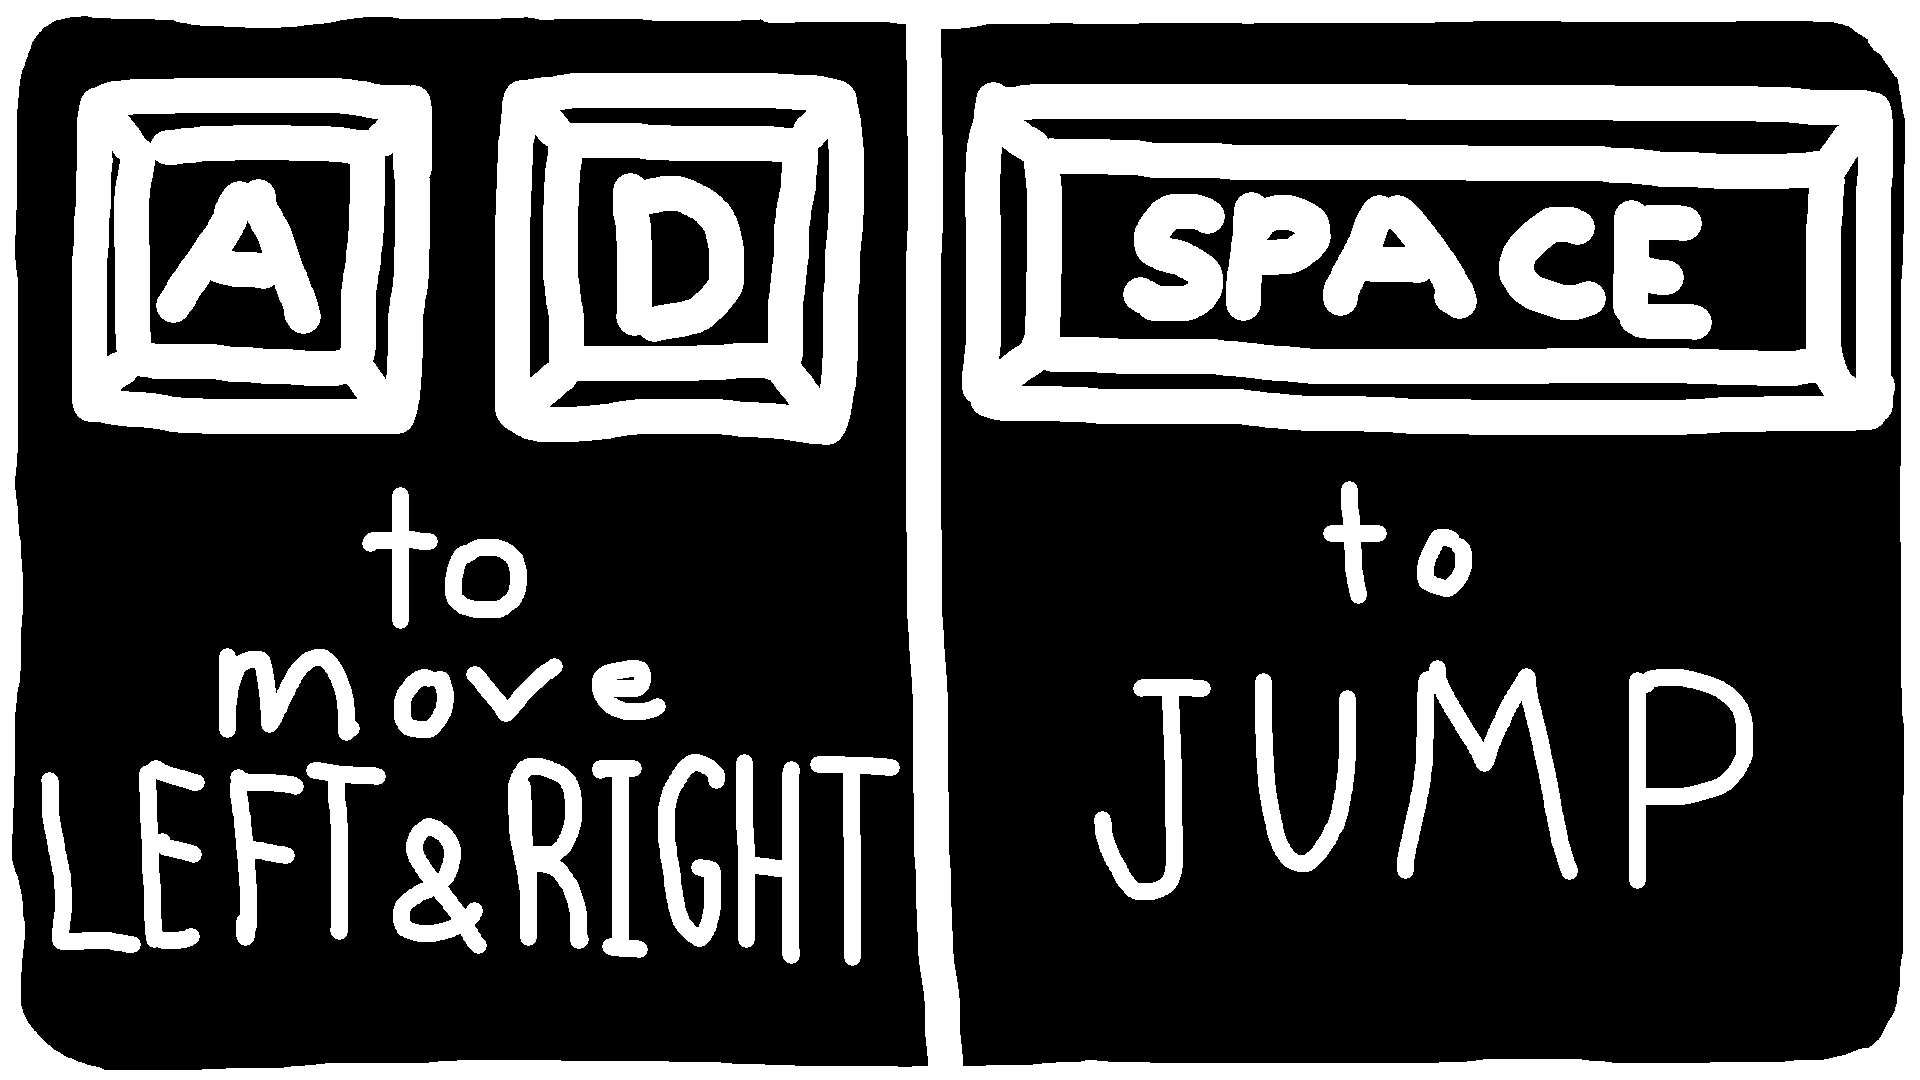 A D
to
move
LEFT & RIGHT
SPACE
to
JUMP